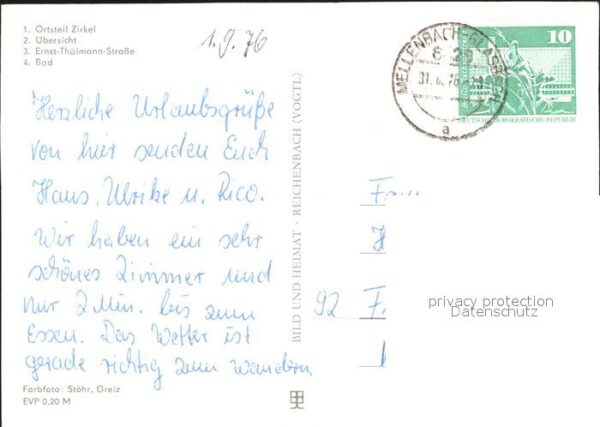 1. Ortsteil Zirkel
2. Übersicht
3. Ernst-Thälmann-Straße
4. Bad
1.9.76
Herzliche Urlaubsgrüße
von hier senden Euch
Hans, Ulrike u. Rico.
Wir haben ein sehr
schönes Zimmer und
nur 2 Min. bis zum
Essen. Das Wetter ist
gerade richtig zum Wandern.
Farbfoto: Stöhr, Greiz
EVP 0,20 M
BILD UND HEIMAT · REICHENBACH (VOGTL)
MELLENBACH-GLASBACH
a
10
DEUTSCHE DEMOKRATISCHE REPUBLIK
92 F.
privacy protection
Datenschutz